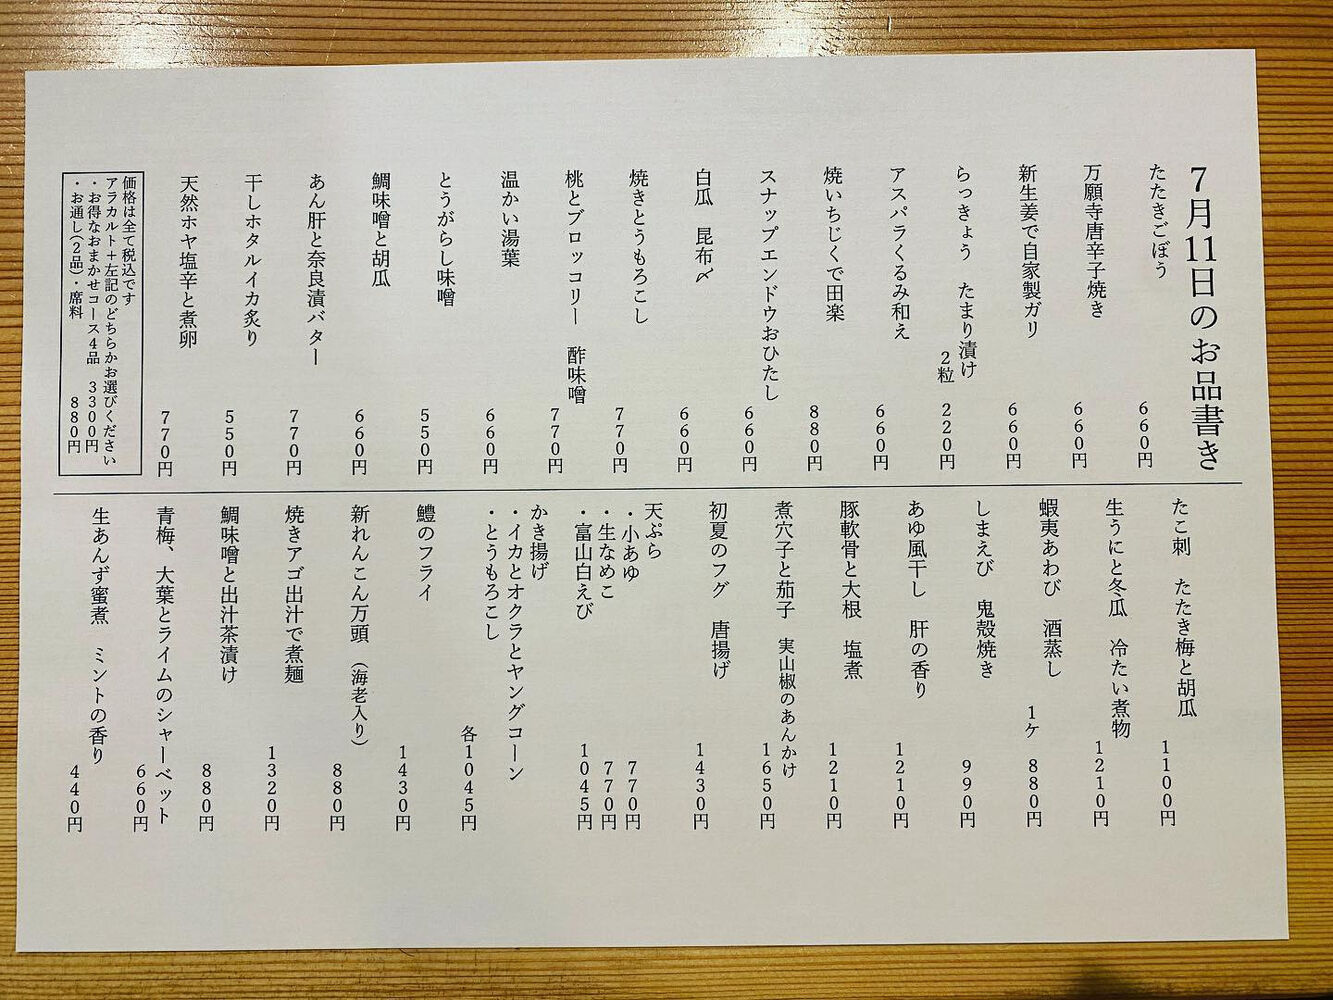 7月11日のお品書き
たたきごぼう 660円
万願寺唐辛子焼き 660円
新生姜で自家製ガリ 660円
らっきょう たまり漬け
2粒 220円
アスパラくるみ和え 660円
焼いちじくで田楽 880円
スナップエンドウおひたし 660円
白瓜 昆布〆 660円
焼きとうもろこし 770円
桃とブロッコリー 酢味噌 770円
温かい湯葉 660円
とうがらし味噌 550円
鯛味噌と胡瓜 660円
あん肝と奈良漬バター 770円
干しホタルイカ炙り 550円
天然ホヤ塩辛と煮卵 770円
価格は全て税込です
アラカルト+左記のどちらかお選びください
・お得なおまかせコース4品 3300円
・お通し(2品)・席料 880円
たこ刺 たたき梅と胡瓜 1100円
生うにと冬瓜 冷たい煮物 1210円
蝦夷あわび 酒蒸し 1ケ 880円
しまえび 鬼殻焼き 990円
あゆ風干し 肝の香り 1210円
豚軟骨と大根 塩煮 1210円
煮穴子と茄子 実山椒のあんかけ 1650円
初夏のフグ 唐揚げ 1430円
天ぷら
・小あゆ 770円
・生なめこ 770円
・富山白えび 1045円
かき揚げ
・イカとオクラとヤングコーン
・とうもろこし 各1045円
鱧のフライ 1430円
新れんこん万頭(海老入り) 880円
焼きアゴ出汁で煮麺 1320円
鯛味噌と出汁茶漬け 880円
青梅、大葉とライムのシャーベット 660円
生あんず蜜煮 ミントの香り 440円